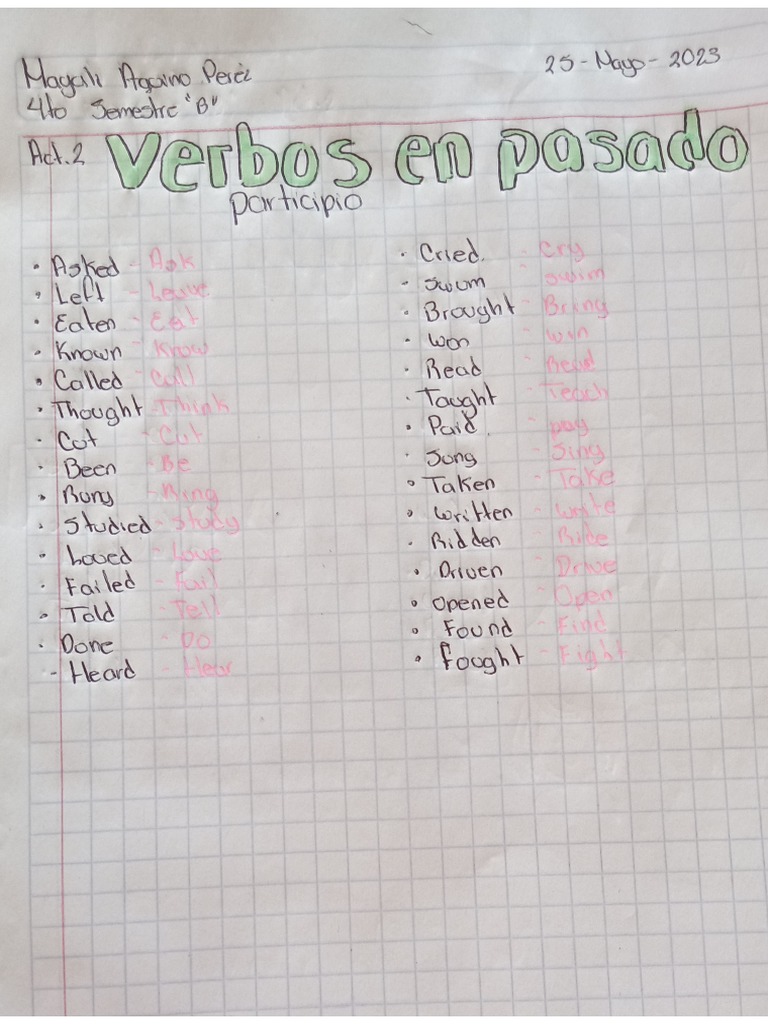 Magali Aquino Peréz
25-Mayo-2023
4to Semestre "B"
Act.2 Verbos en pasado
participio
• Asked - Ask
• Left - Leave
• Eaten - Eat
• Known - Know
• Called - Call
• Thought - Think
• Cut - Cut
• Been - Be
• Rung - Ring
• Studied - Study
• Loved - Love
• Failed - Fail
• Told - Tell
• Done - Do
- Heard - Hear
• Cried. - Cry
• Swum - swim
• Brought - Bring
• Won - win
• Read - Read
• Taught - Teach
• Paid. - pay
• Sung - Sing
• Taken - Take
• Written - write
• Ridden - Ride
• Driven - Drive
• Opened - Open
• Found - Find
• Fought - Fight